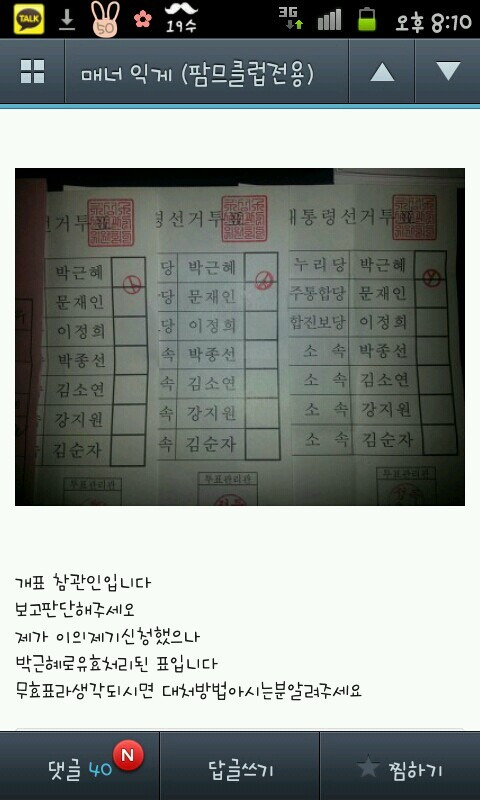 TALK
50
19수
3G
오후 8:10
매너 익게 (팜므클럽전용)
선거투표
령선거투표
대통령선거투표
박근혜
문재인
이정희
박종선
김소연
강지원
김순자
당 박근혜
당 문재인
당 이정희
속 박종선
속 김소연
속 강지원
속 김순자
누리당 박근혜
주통합당 문재인
합진보당 이정희
소 속 박종선
소 속 김소연
소 속 강지원
소 속 김순자
투표관리관
투표관리관
투표관리관
개표 참관인입니다
보고판단해주세요
제가 이의제기신청했으나
박근혜로유효처리된 표입니다
무효표라생각되시면 대처방법아시는분알려주세요
댓글 40
N
답글쓰기
찜하기